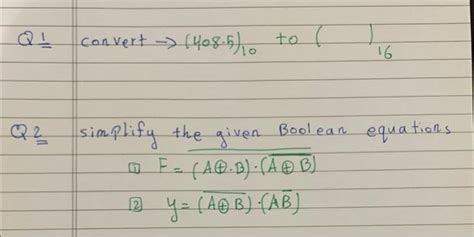 Q1 convert → (408.5)₁₀ to ( )₁₆
Q2 simplify the given Boolean equations
[1] F = \overline{(A⊕.B)·(\overline{A⊕B})}
[2] y = (\overline{A⊕B})·(A\overline{B})